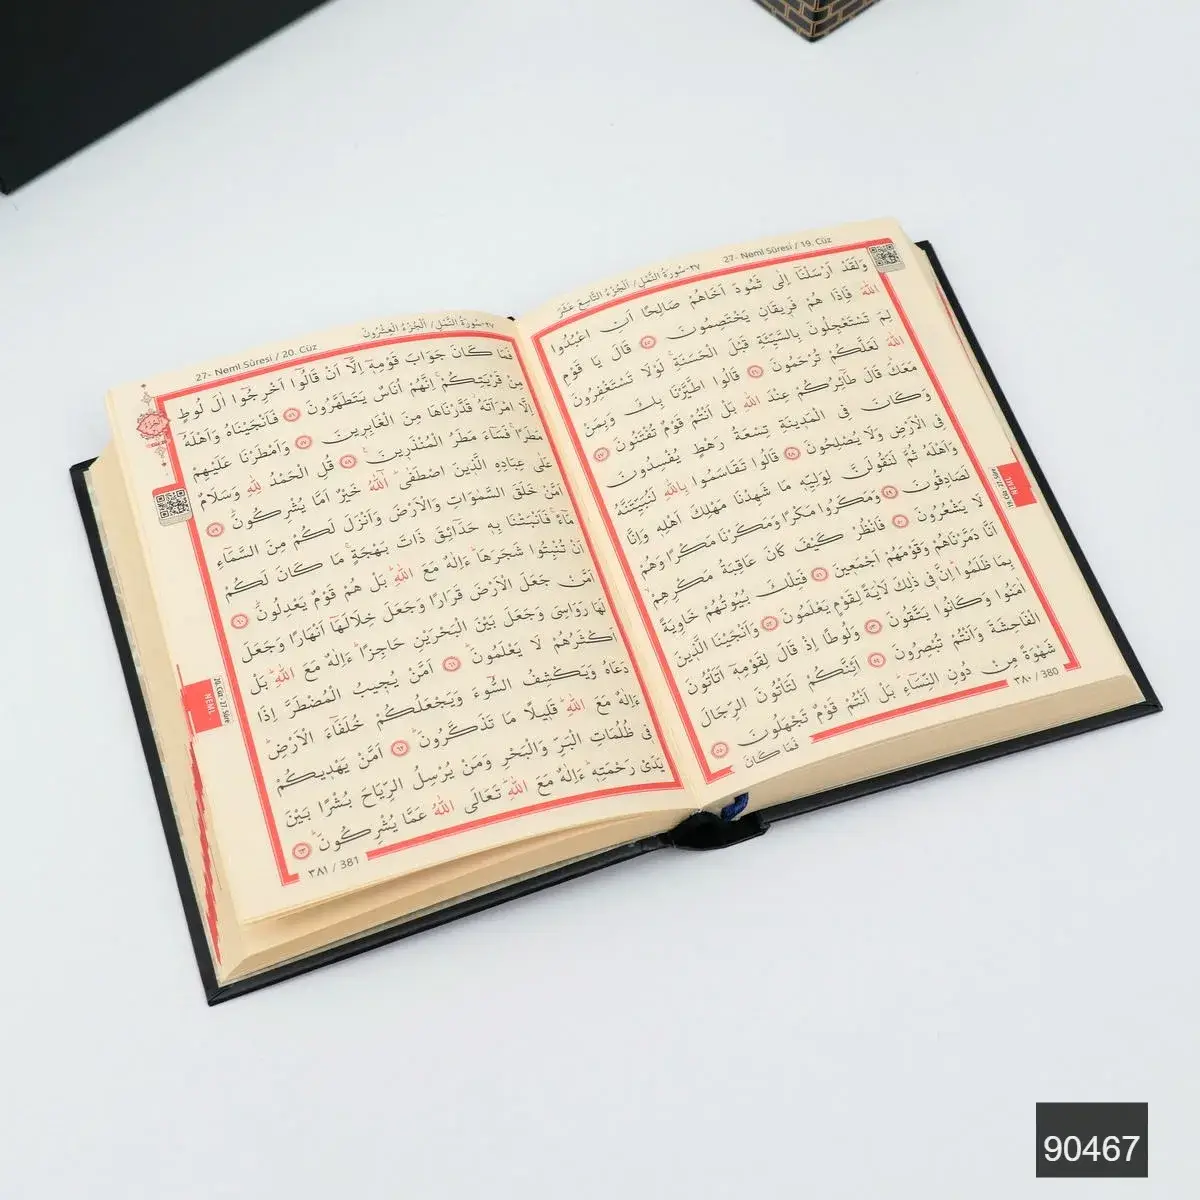 27- Neml Sûresi / 19. Cüz
٢٧-سُورَةُ النَّمْلِ / اَلْجُزْءُ التَّاسِعَ عَشَرَ
وَلَقَدْ اَرْسَلْنَٓا اِلٰى ثَمُودَ اَخَاهُمْ صَالِحًا اَنِ اعْبُدُوا
اللّٰهَ فَاِذَا هُمْ فَر۪يقَانِ يَخْتَصِمُونَ ٤٥ قَالَ يَا قَوْمِ
لِمَ تَسْتَعْجِلُونَ بِالسَّيِّئَةِ قَبْلَ الْحَسَنَةِۚ لَوْلَا تَسْتَغْفِرُونَ
اللّٰهَ لَعَلَّكُمْ تُرْحَمُونَ ٤٦ قَالُوا اطَّيَّرْنَا بِكَ وَبِمَنْ
مَعَكَۜ قَالَ طَٓائِرُكُمْ عِنْدَ اللّٰهِ بَلْ اَنْتُمْ قَوْمٌ تُفْتَنُونَ ٤٧
وَكَانَ فِي الْمَد۪ينَةِ تِسْعَةُ رَهْطٍ يُفْسِدُونَ
فِي الْاَرْضِ وَلَا يُصْلِحُونَ ٤٨ قَالُوا تَقَاسَمُوا بِاللّٰهِ لَنُبَيِّتَنَّهُ
وَاَهْلَهُ ثُمَّ لَنَقُولَنَّ لِوَلِيِّه۪ مَا شَهِدْنَا مَهْلِكَ اَهْلِه۪ وَاِنَّا
لَصَادِقُونَ ٤٩ وَمَكَرُوا مَكْرًا وَمَكَرْنَا مَكْرًا وَهُمْ
لَا يَشْعُرُونَ ٥٠ فَانْظُرْ كَيْفَ كَانَ عَاقِبَةُ مَكْرِهِمْۙ
اَنَّا دَمَّرْنَاهُمْ وَقَوْمَهُمْ اَجْمَع۪ينَ ٥١ فَتِلْكَ بُيُوتُهُمْ خَاوِيَةً
بِمَا ظَلَمُواۜ اِنَّ ف۪ي ذٰلِكَ لَاٰيَةً لِقَوْمٍ يَعْلَمُونَ ٥٢ وَاَنْجَيْنَا الَّذ۪ينَ
اٰمَنُوا وَكَانُوا يَتَّقُونَ ٥٣ وَلُوطًا اِذْ قَالَ لِقَوْمِه۪ٓ اَتَأْتُونَ
الْفَاحِشَةَ وَاَنْتُمْ تُبْصِرُونَ ٥٤ اَئِنَّكُمْ لَتَأْتُونَ الرِّجَالَ
شَهْوَةً مِنْ دُونِ النِّسَٓاءِۜ بَلْ اَنْتُمْ قَوْمٌ تَجْهَلُونَ ٥٥
فَمَا كَانَ
٣٨٠ / 380
19. Cüz · 27. Sûre
NEML
27- Neml Sûresi / 20. Cüz
٢٧-سُورَةُ النَّمْلِ / اَلْجُزْءُ الْعِشْرُونَ
فَمَا كَانَ جَوَابَ قَوْمِه۪ٓ اِلَّٓا اَنْ قَالُٓوا اَخْرِجُٓوا اٰلَ لُوطٍ
مِنْ قَرْيَتِكُمْۚ اِنَّهُمْ اُنَاسٌ يَتَطَهَّرُونَ ٥٦ فَاَنْجَيْنَاهُ وَاَهْلَهُٓ
اِلَّا امْرَاَتَهُۘ قَدَّرْنَاهَا مِنَ الْغَابِر۪ينَ ٥٧ وَاَمْطَرْنَا عَلَيْهِمْ
مَطَرًاۚ فَسَٓاءَ مَطَرُ الْمُنْذَر۪ينَ ٥٨ قُلِ الْحَمْدُ لِلّٰهِ وَسَلَامٌ
عَلٰى عِبَادِهِ الَّذ۪ينَ اصْطَفٰىۜ آٰللّٰهُ خَيْرٌ اَمَّا يُشْرِكُونَۜ ٥٩
اَمَّنْ خَلَقَ السَّمٰوَاتِ وَالْاَرْضَ وَاَنْزَلَ لَكُمْ مِنَ السَّمَٓاءِ
مَٓاءًۚ فَاَنْبَتْنَا بِه۪ حَدَٓائِقَ ذَاتَ بَهْجَةٍۚ مَا كَانَ لَكُمْ
اَنْ تُنْبِتُوا شَجَرَهَاۜ ءَاِلٰهٌ مَعَ اللّٰهِۜ بَلْ هُمْ قَوْمٌ يَعْدِلُونَۜ ٦٠
اَمَّنْ جَعَلَ الْاَرْضَ قَرَارًا وَجَعَلَ خِلَالَهَٓا اَنْهَارًا وَجَعَلَ
لَهَا رَوَاسِيَ وَجَعَلَ بَيْنَ الْبَحْرَيْنِ حَاجِزًاۜ ءَاِلٰهٌ مَعَ اللّٰهِۜ بَلْ
اَكْثَرُهُمْ لَا يَعْلَمُونَۜ ٦١ اَمَّنْ يُج۪يبُ الْمُضْطَرَّ اِذَا
دَعَاهُ وَيَكْشِفُ السُّٓوءَ وَيَجْعَلُكُمْ خُلَفَٓاءَ الْاَرْضِۜ
ءَاِلٰهٌ مَعَ اللّٰهِۜ قَل۪يلًا مَا تَذَكَّرُونَۜ ٦٢ اَمَّنْ يَهْد۪يكُمْ
ف۪ي ظُلُمَاتِ الْبَرِّ وَالْبَحْرِ وَمَنْ يُرْسِلُ الرِّيَاحَ بُشْرًا بَيْنَ
يَدَيْ رَحْمَتِه۪ۜ ءَاِلٰهٌ مَعَ اللّٰهِۜ تَعَالَى اللّٰهُ عَمَّا يُشْرِكُونَۜ ٦٣
٣٨١ / 381
20. Cüz · 27. Sûre
NEML
90467